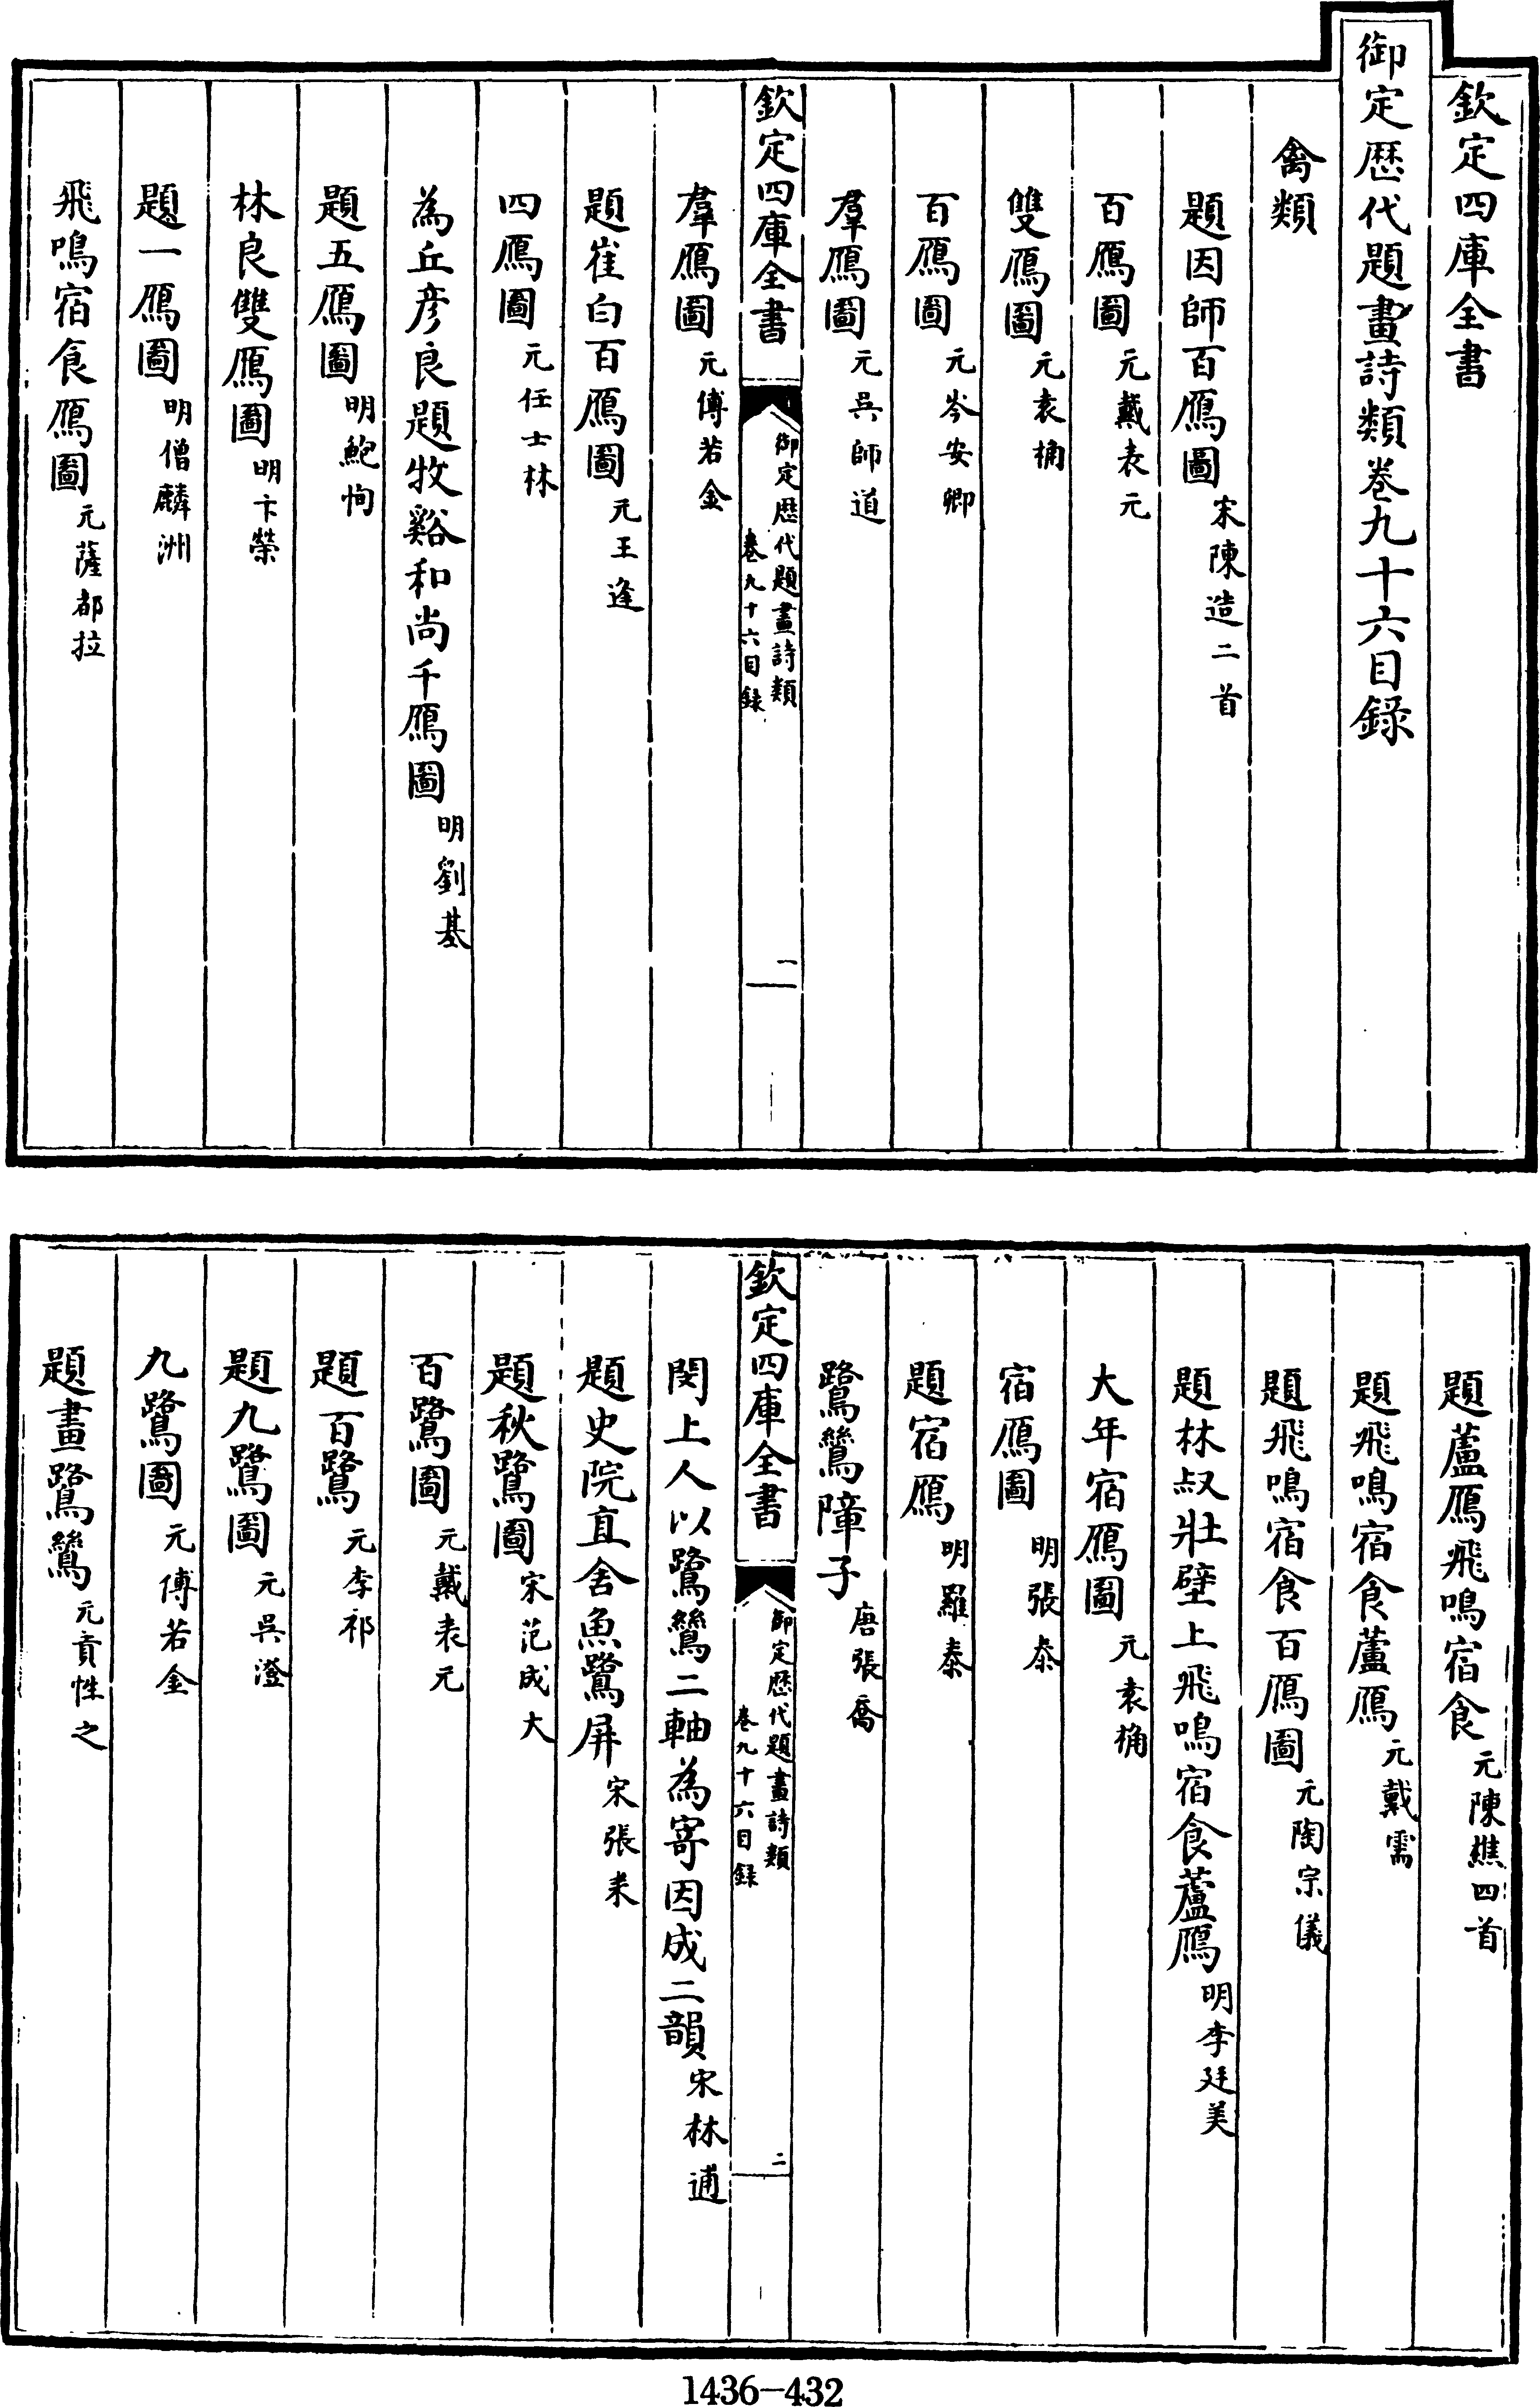 欽定四庫全書
御定歴代題畫詩類卷九十六目錄
禽類
題因師百鴈圖 宋陳造二首
百鴈圖 元戴表元
雙鴈圖 元袁桷
百鴈圖 元岑安卿
羣鴈圖 元吳師道
欽定四庫全書 御定歴代題畫詩類 卷九十六目録 一
羣鴈圖 元傅若金
題崔白百鴈圖 元王逢
四鴈圖 元任士林
為丘彥良題牧谿和尚千鴈圖 明劉基
題五鴈圖 明鮑恂
林良雙鴈圖 明卞榮
題一鴈圖 明僧麟洲
飛鳴宿食鴈圖 元薩都拉
題蘆雁飛鳴宿食 元陳樵四首
題飛鳴宿食蘆鴈 元戴需
題飛鳴宿食百鴈圖 元陶宗儀
題林叔壯壁上飛鳴宿食蘆鴈 明李廷美
大年宿鴈圖 元袁桷
宿鴈圖 明張泰
題宿鴈 明羅泰
鷺鷥障子 唐張喬
欽定四庫全書 御定歴代題畫詩類 卷九十六目録 二
閔上人以鷺鷥二軸為寄因成二韻 宋林逋
題史院直舍魚鷺屏 宋張耒
題秋鷺圖 宋范成大
百鷺圖 元戴表元
題百鷺 元李祁
題九鷺圖 元吳澄
九鷺圖 元傅若金
題畫鷺鷥 元貢性之
1436-432